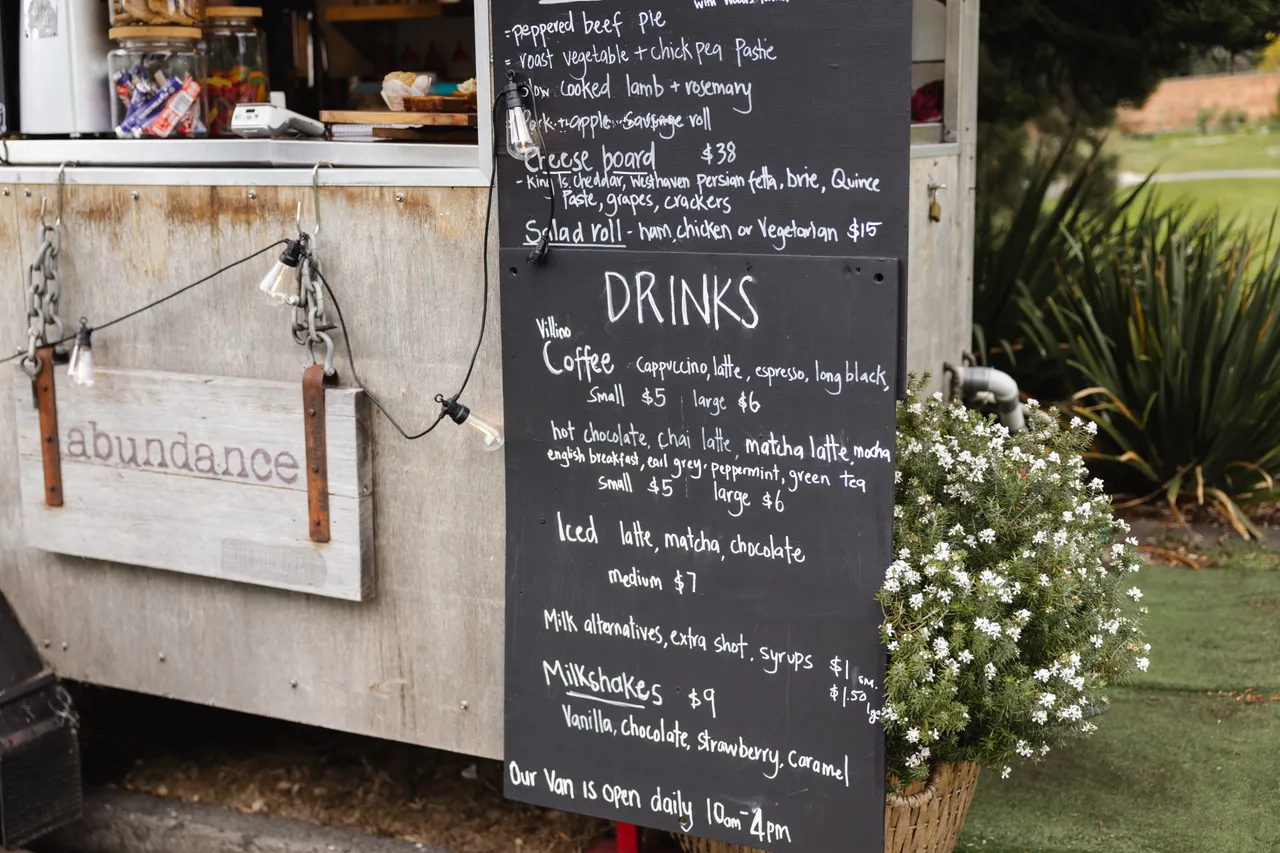 - peppered beef pie
- roast vegetable + chick pea Pastie
slow cooked lamb + rosemary
Pork + apple sausage roll
Cheese board $38
- King Is. Cheddar, Westhaven Persian fetta, brie, Quince
Paste, grapes, crackers
Salad roll - ham, chicken or Vegetarian $15
DRINKS
Villino
Coffee Cappuccino, latte, espresso, long black,
Small $5 large $6
hot chocolate, Chai latte, matcha latte, mocha
english breakfast, earl grey, peppermint, green tea
small $5 large $6
Iced latte, matcha, chocolate
medium $7
Milk alternatives, extra shot, syrups $1 sm.
$1.50 lge
Milkshakes $9
Vanilla, chocolate, strawberry, caramel
Our Van is open daily 10am-4pm
abundance